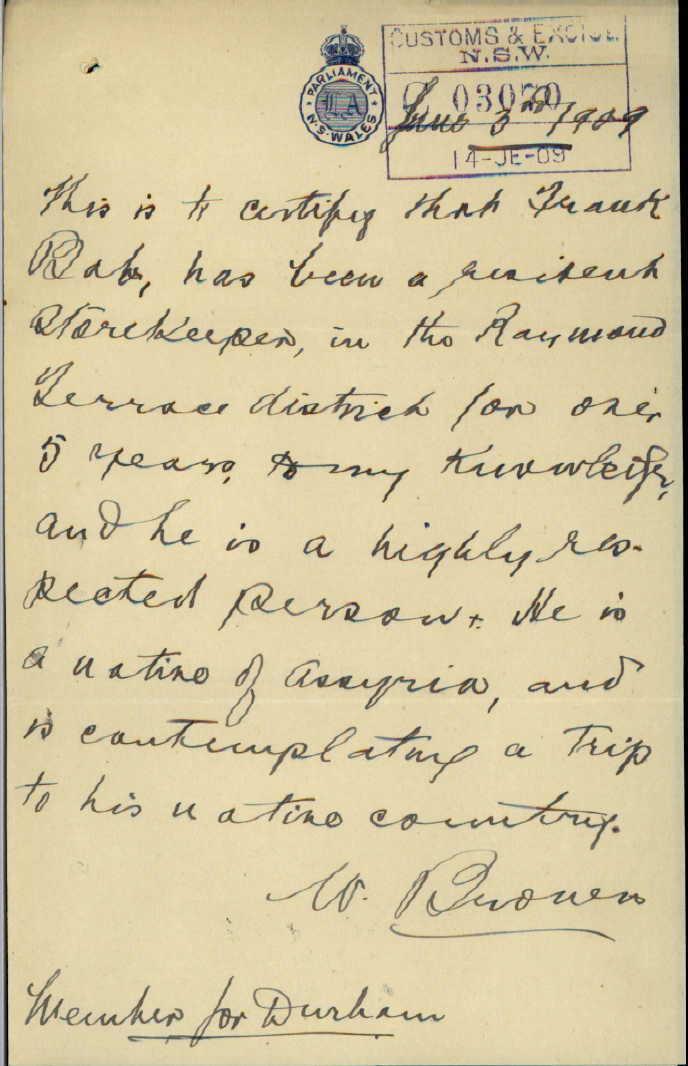 CUSTOMS & EXCISE
N.S.W.
PARLIAMENT
LA
N.S. WALES
03070
June 3rd 1909
14-JE-09
This is to certify that Frank
Bab, has been a resident
Storekeeper, in the Raymond
Terrace district for over
5 years, to my Knowledge,
and he is a highly res-
pected person. He is
a native of Assyria, and
is contemplating a trip
to his native country.
W.
Member for Durham